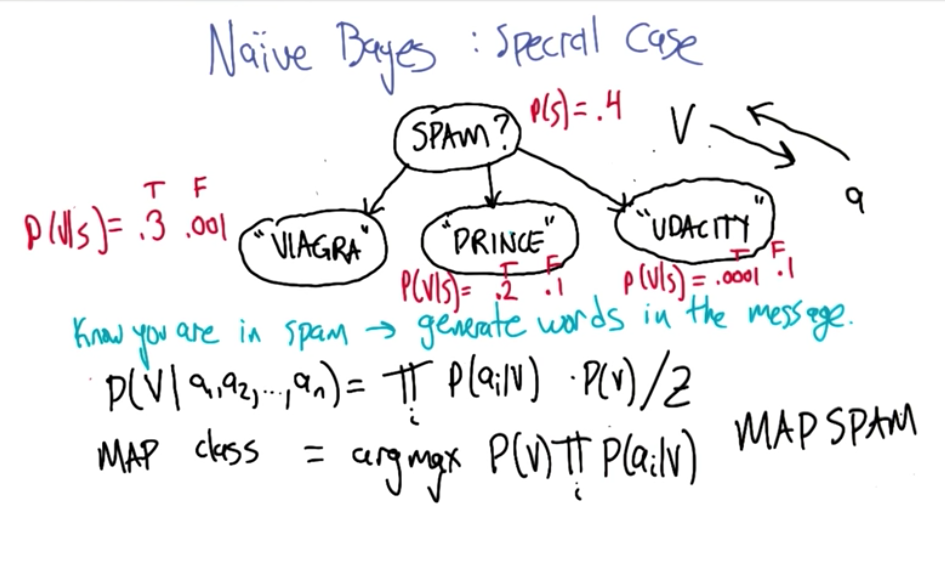 Naïve Bayes : Special Case
SPAM? P(s)=.4 V
a
T F
P(V|s)= .3 .001 "VIAGRA" "PRINCE" "UDACITY"
T F T F
P(V|s)= .2 .1 P(V|s)= .0001 .1
Know you are in spam → generate words in the message.
P(V|a₁,a₂,...,aₙ)= ∏ᵢ P(aᵢ|V) · P(V)/Z
MAP class = argmax P(V)∏ᵢ P(aᵢ|V) MAP SPAM